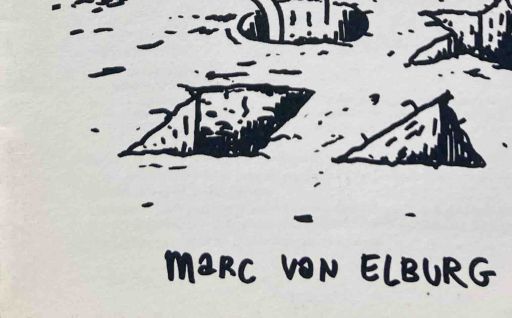 MaRC VAN ELBURG